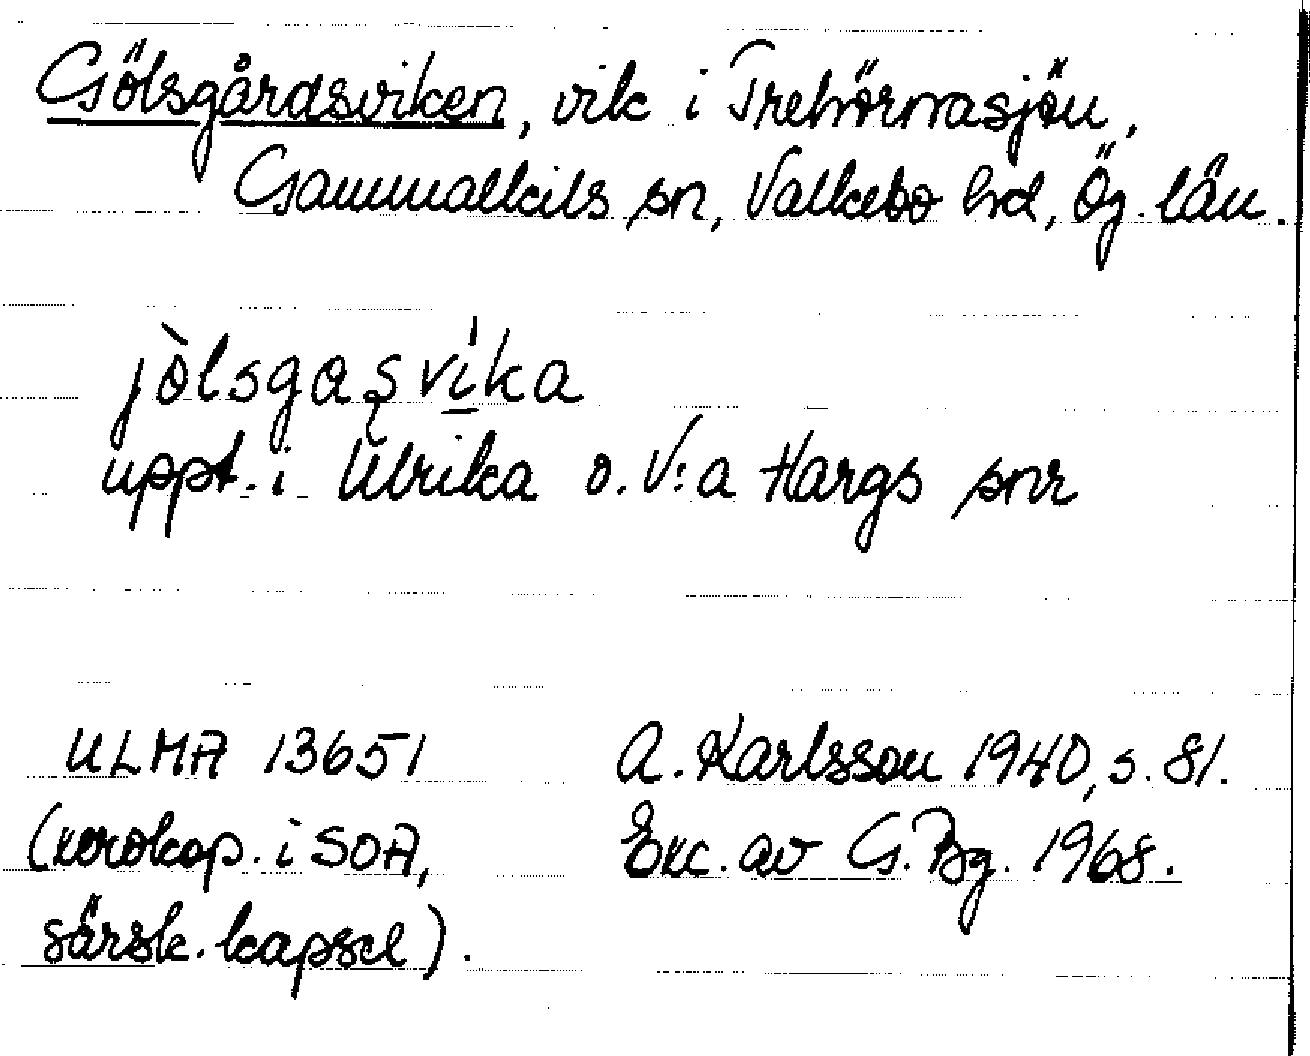 Gölsgårdsviken, vik i Trehörnasjön,
Gammalkils sn, Valkebo hd, Ög. län.
jòlsgaşvíka
uppt. i Ulrika o. V:a Hargs snr
ULMA 13651 A. Karlsson 1940, s. 81.
(xerokop. i SOA, Exc. av G. Bg. 1968.
särsk. kapsel).